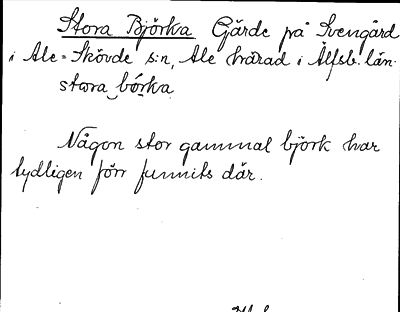 Stora Björka Gärde på Svengård
i Ale-Skövde s:n, Ale härad i Älfsb. län.
stora börka
Någon stor gammal björk har
tydligen förr funnits där.